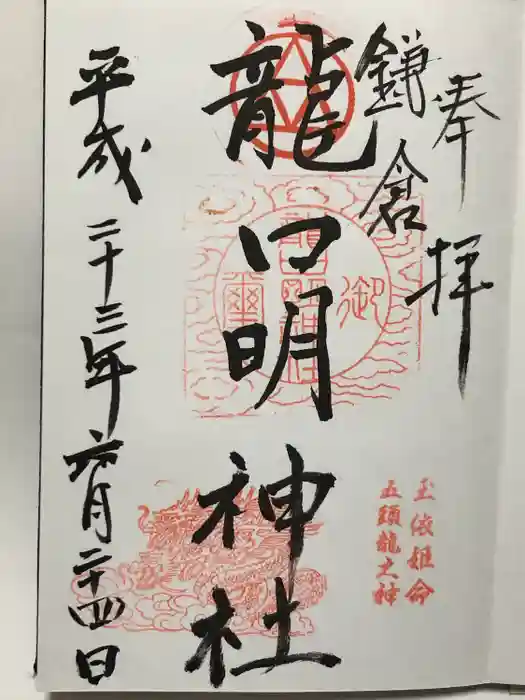 奉拝
鎌倉
龍口明神社
平成二十三年六月二十四日
玉依姫命
五頭龍大神
龍口明神社
御璽